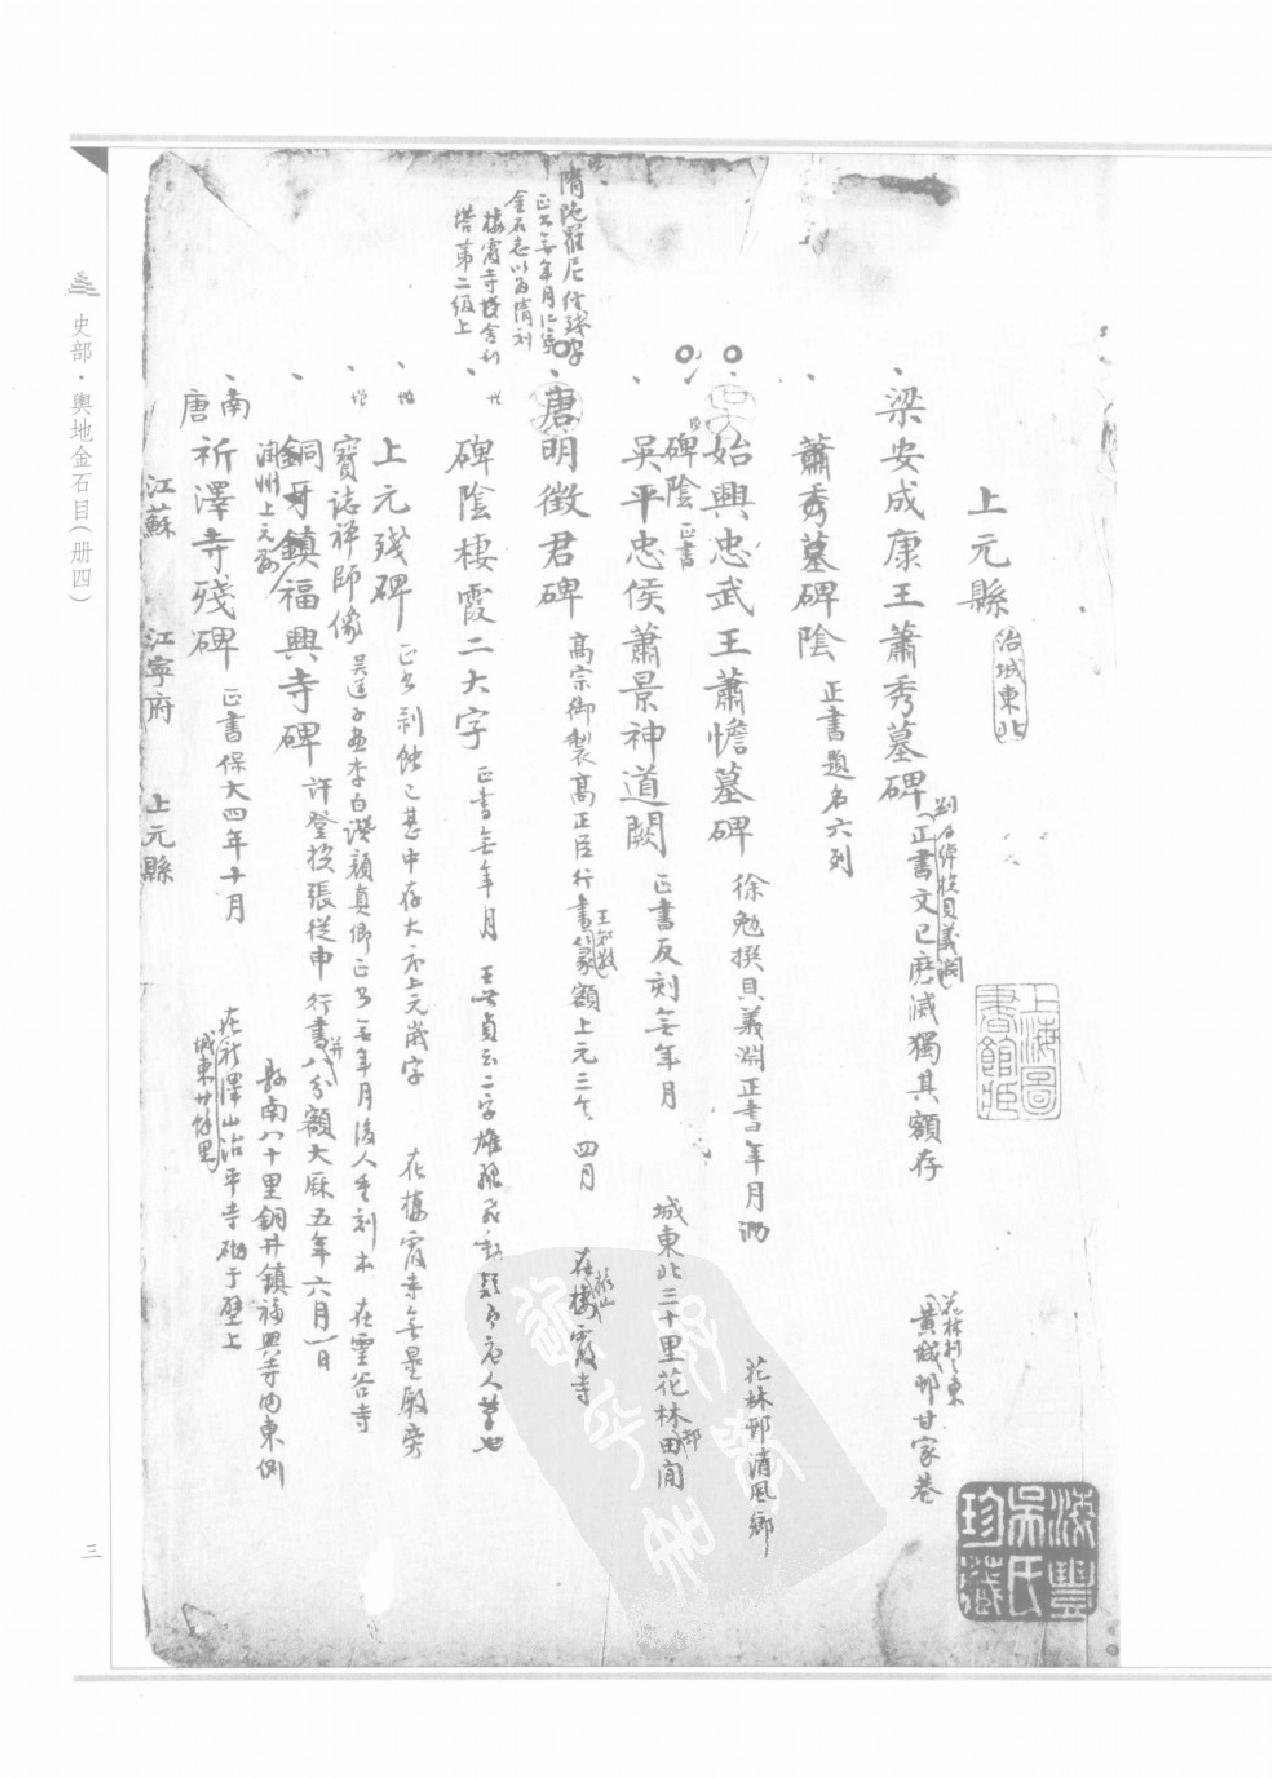 上元縣 治城東北
梁安成康王蕭秀墓碑 正書文已磨滅獨其額存 黃城邨甘家巷
劉孝綽撰貝義淵
花林村之東
蕭秀墓碑陰 正書題名六列
始興忠武王蕭憺墓碑 徐勉撰貝義淵正書年月泐 花林邨清風鄉
碑陰 正書
吳平忠侯蕭景神道闕 正書反刻無年月 城東北三十里花林田間
唐明徵君碑 高宗御製高正臣行書篆額上元三年四月 在棲霞寺
隋陀羅尼經殘字
正書無年月江寧
金石志以為隋刻
棲霞寺塔舍利
塔第二級上
碑陰棲霞二大字 正書無年月 王世貞云二字雄飛動疑即唐人書也
上元殘碑 正書剝蝕已甚中存大唐上元歲字 在棲霞寺無量殿旁
寶誌禪師像 吳道子畫李白讚顏真卿正書無年月後人重刻本 在靈谷寺
銅井鎮福興寺碑 許登撰張從申行書八分額大厤五年六月一日 縣南八十里銅井鎮福興寺內東側
潤州上元縣
南唐祈澤寺殘碑 正書保大四年十月 在祈澤山治平寺砌于壁上
城東廿餘里
江蘇 江寧府 上元縣
史部・輿地金石目(册四)
三
上海圖書館藏
海豐吳氏珍藏